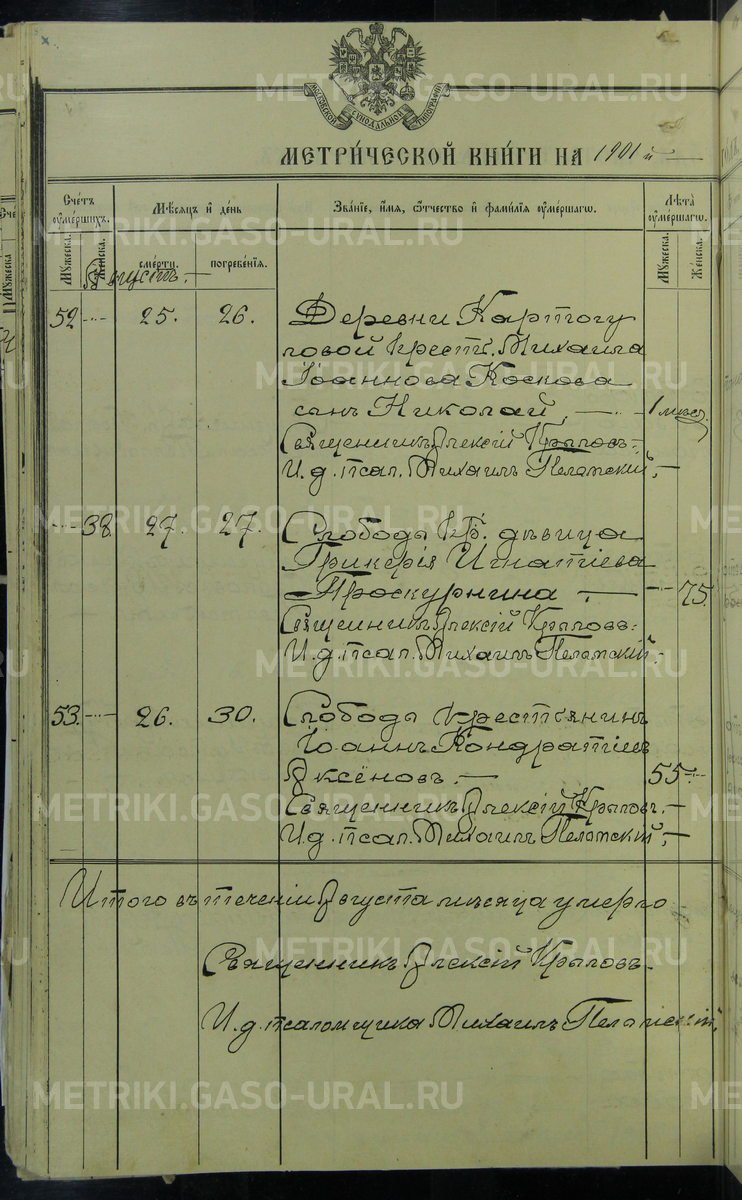 МОСКОВСКОЙ СУНОДАЛЬНОЙ ТИПОГРАФІИ
МЕТРИЧЕСКОЙ КНИГИ НА 1901 й
Счетъ умершихъ.
Мѣсяцъ и день
Званіе, имя, отчество и фамилія умершаго.
Лѣта умершаго.
Мужеска.
Женска.
смерти.
погребенія.
Мужеска.
Женска.
Августъ.
52 25. 26. Деревни Картогу
ловой крест. Михаила
Іоаннова Коскова
сынъ Николай 1 мѣс.
Священникъ Алексій Крыловъ.
И.д. псал. Михаилъ Пеламскій.
38 27. 27. Слободы кр. дѣвица
Гликерія Игнатіева
Проскурнина 75.
Священникъ Алексій Крыловъ.
И.д. псал. Михаилъ Пеламскій.
53. 26. 30. Слободы крестьянинъ
Іоаннъ Кондратіев
Аксёновъ. 55
Священникъ Алексій Крыловъ.
И.д. псал. Михаилъ Пеламскій.
Итого въ теченіи Августа мѣсяца умерло
Священникъ Алексій Крыловъ.
И.д. псаломщика Михаилъ Пеламскій.
METRIKI.GASO-URAL.RU